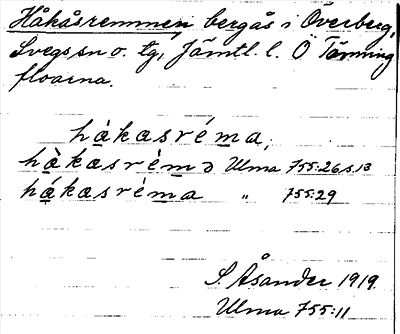 Håkåsremmen bergås i Överberg,
Svegs sn o. tg, Jämtl. l. Ö Tanning
floarna.
hàkasréma,
hàkasrémə Ulma 755:26 s. 13
hákasréma " 755:29
S. Åsander 1919
Ulma 755:11